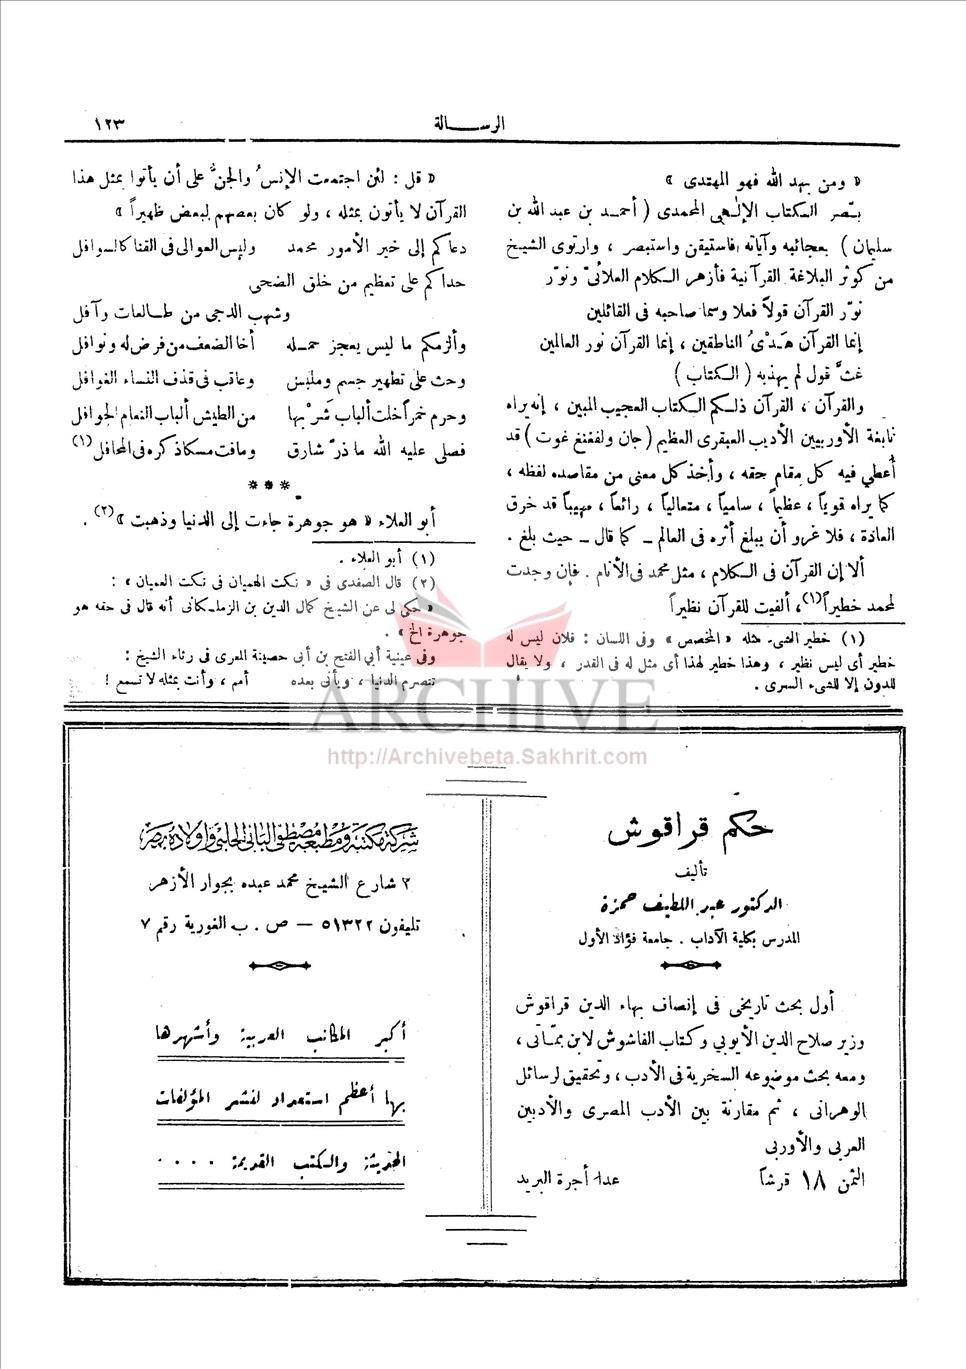 الرســـالة
١٢٣
« ومن يهد الله فهو المهتدى »
بصر الكتاب الإلهى المحمدى ( أحمد بن عبد الله بن
سليمان ) بعجائبه وآياته فاستيقن واستبصر ، وارتوى الشيخ
من كوثر البلاغة القرآنية فأزهر الكلام العلائىّ ونوّر
نوّر القرآن قولاً فعلا وسما صاحبه فى القائلين
إنما القرآن هَدْىُ الناطقين ، إنما القرآن نور العالمين
غثَّ قول لم يهذبه ( الكتاب )
والقرآن ، القرآن ذلكم الكتاب العجيب المبين ، إنه يراه
نابغة الأوربيين الأديب العبقرى العظيم ( جان ولفغنغ غوت ) قد
أُعطي فيه كل مقام حقه ، وأخذ كل معنى من مقاصده لفظه ،
كما يراه قوياً ، عظيماً ، سامياً ، متعالياً ، رائعاً ، مهيباً قد خرق
العادة ، فلا غرو أن يبلغ أثره فى العالم ــ كما قال ــ حيث بلغ .
ألا إن القرآن فى الكلام ، مثل محمد فى الأنام . فإن وجدت
لمحمد خطيراً(١)، ألفيت للقرآن نظيراً
(١) خطير الشىء مثله « المخصص » وفى اللسان : فلان ليس له
خطير أى ليس نظير ، وهذا خطير لهذا أى مثل له فى القدر ، ولا يقال
للدون إلا للشىء السرى .
« قل : لئن اجتمعت الإنسُ والجنُّ على أن يأتوا بمثل هذا
القرآن لا يأتون بمثله ، ولو كان بعضهم لبعض ظهيراً »
دعاكم إلى خير الأمور محمد وليس العوالى فى القنا كالسوافل
حداكم على تعظيم من خلق الضحى
وشهب الدجى من طالعات وآفل
وألزمكم ما ليس يعجز حمله أخا الضعف من فرض له ونوافل
وحث على تطهير جسم وملبس وعاقب فى قذف النساء الغوافل
وحرم خمراً خلت ألباب شَرْبها من الطيش ألباب النعام الجوافل
فصلى عليه الله ما ذرّ شارق وما فت مسكا ذكره فى المحافل(١)
* * *
أبو العلاء « هو جوهرة جاءت إلى الدنيا وذهبت »(٢) .
(١) أبو العلاء .
(٢) قال الصفدى فى « نكت الهميان فى نكت العميان » :
« حكى لى عن الشيخ كمال الدين بن الزملكانى أنه قال فى حقه هو
جوهرة الخ » .
وفى عينية أبي الفتح بن أبى حصينة المعرى فى رثاء الشيخ :
تتصرم الدنيا ، ويأتى بعده أمم ، وأنت بمثله لا تسمع !
ARCHIVE
http://Archivebeta.Sakhrit.com
حكم قراقوش
تأليف
الدكتور عبد اللطيف حمزة
المدرس بكلية الآداب . جامعة فؤاد الأول
أول بحث تاريخى فى إنصاف بهاء الدين قراقوش
وزير صلاح الدين الأيوبي وكتاب الفاشوش لابن ممّاتى ،
ومعه بحث موضوعه السخرية فى الأدب ، وتحقيق لرسائل
الوهرانى ، ثم مقارنة بين الأدب المصرى والأدبين
العربى والأوربى
الثمن ١٨ قرشاً عدا أجرة البريد
شركة مكتبة ومطبعة مصطفى البابى الحلبى وأولاده بمصر
٢ شارع الشيخ محمد عبده بجوار الأزهر
تليفون ٥١٣٢٢ — ص . ب الغورية رقم ٧
أكبر المكاتب العربية وأشهرها
بها أعظم استعداد لنشر المؤلفات
الحديثة والكتب القديمة . . . .